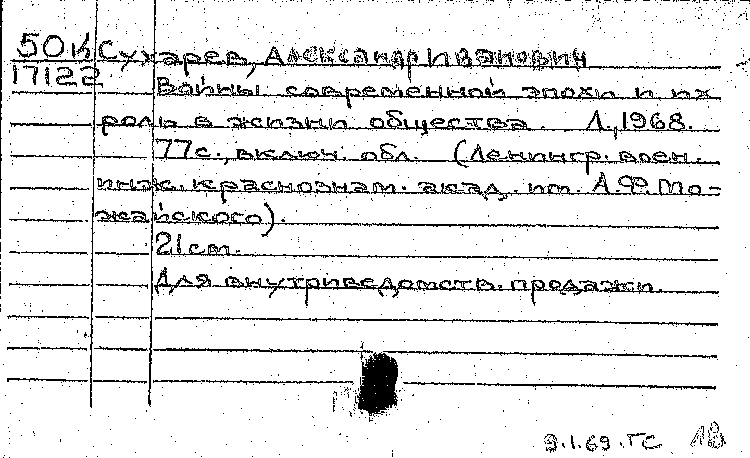 50К Сухарев, Александр Иванович
17122
Войны современной эпохи и их
роль в жизни общества. Л., 1968.
77с., включ. обл. (Ленингр. воен.
инж. краснознам. акад. им. А.Ф. Мо-
жайского).
21 см.
Для внутриведомств. продажи.
9.1.69.ГС